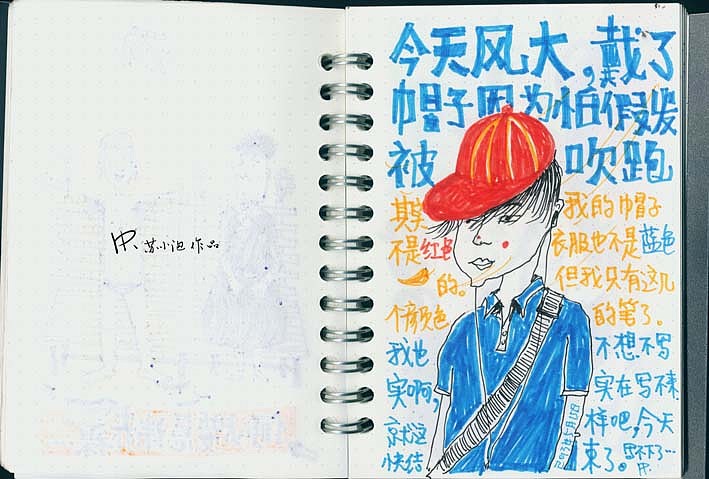 苏小泡作品
今天风大,戴了
帽子因为怕假发
被吹跑
其实我的帽子
不是红色衣服也不是蓝色
的。但我只有这几
個颜色的笔了。
我也不想不写
实啊,实在写不来
就这样吧,今天
快结束了。